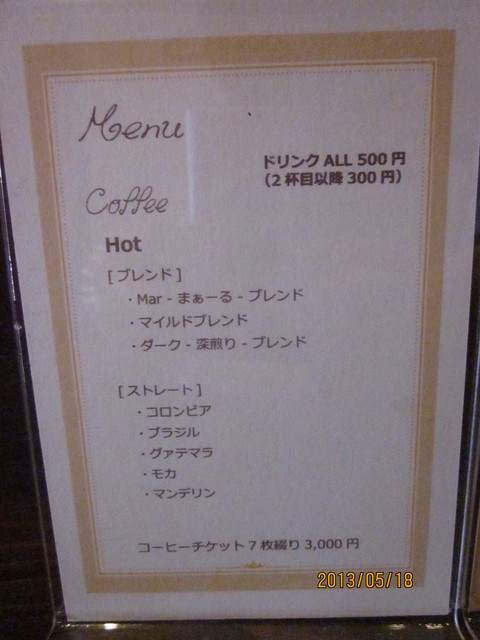 Menu
ドリンク ALL 500 円
（2 杯目以降 300 円）
Coffee
Hot
[ ブレンド ]
・Mar - まぁーる - ブレンド
・マイルドブレンド
・ダーク - 深煎り - ブレンド
[ ストレート ]
・コロンビア
・ブラジル
・グァテマラ
・モカ
・マンデリン
コーヒーチケット 7 枚綴り 3,000 円
2013/05/18